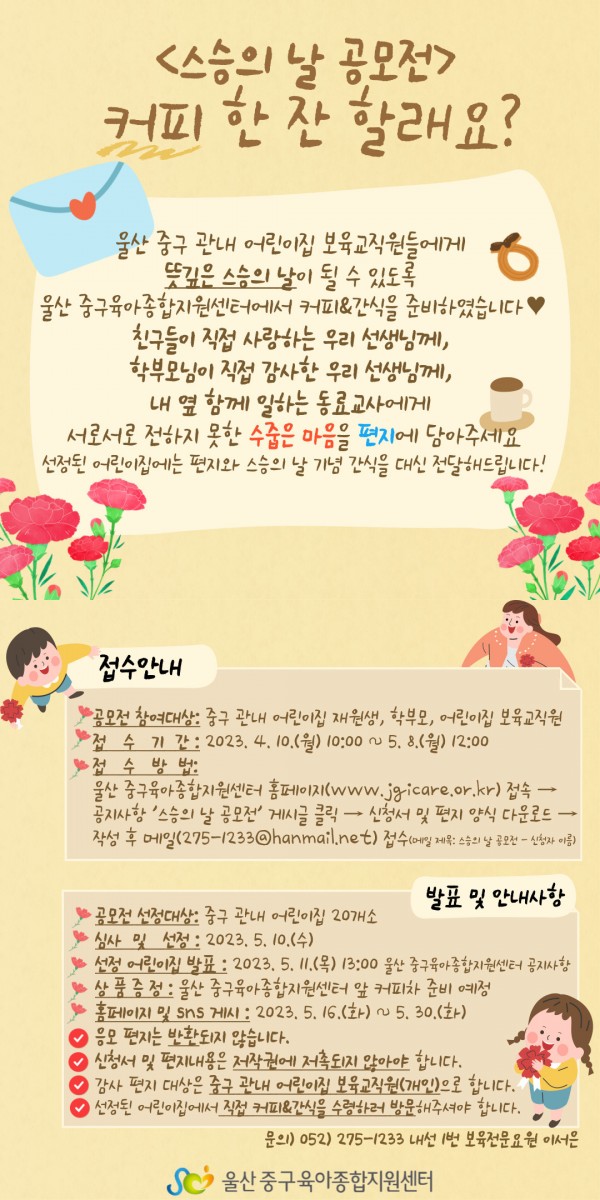 <스승의 날 공모전>
커피 한 잔 할래요?
울산 중구 관내 어린이집 보육교직원들에게
뜻깊은 스승의 날이 될 수 있도록
울산 중구육아종합지원센터에서 커피&간식을 준비하였습니다♥
친구들이 직접 사랑하는 우리 선생님께,
학부모님이 직접 감사한 우리 선생님께,
내 옆 함께 일하는 동료교사에게
서로서로 전하지 못한 수줍은 마음을 편지에 담아주세요
선정된 어린이집에는 편지와 스승의 날 기념 간식을 대신 전달해드립니다!
접수안내
공모전 참여대상: 중구 관내 어린이집 재원생, 학부모, 어린이집 보육교직원
접 수 기 간 : 2023. 4. 10.(월) 10:00 ~ 5. 8.(월) 12:00
접 수 방 법:
울산 중구육아종합지원센터 홈페이지(www.jgicare.or.kr) 접속 →
공지사항 '스승의 날 공모전' 게시글 클릭 → 신청서 및 편지 양식 다운로드 →
작성 후 메일(275-1233@hanmail.net) 접수(메일 제목: 스승의 날 공모전 - 신청자 이름)
발표 및 안내사항
공모전 선정대상: 중구 관내 어린이집 20개소
심사 및 선정 : 2023. 5. 10.(수)
선정 어린이집 발표 : 2023. 5. 11.(목) 13:00 울산 중구육아종합지원센터 공지사항
상 품 증 정 : 울산 중구육아종합지원센터 앞 커피차 준비 예정
홈페이지 및 sns 게시 : 2023. 5. 16.(화) ~ 5. 30.(화)
응모 편지는 반환되지 않습니다.
신청서 및 편지내용은 저작권에 저촉되지 않아야 합니다.
감사 편지 대상은 중구 관내 어린이집 보육교직원(개인)으로 합니다.
선정된 어린이집에서 직접 커피&간식을 수령하러 방문해주셔야 합니다.
문의) 052) 275-1233 내선 1번 보육전문요원 이서은
울산 중구육아종합지원센터